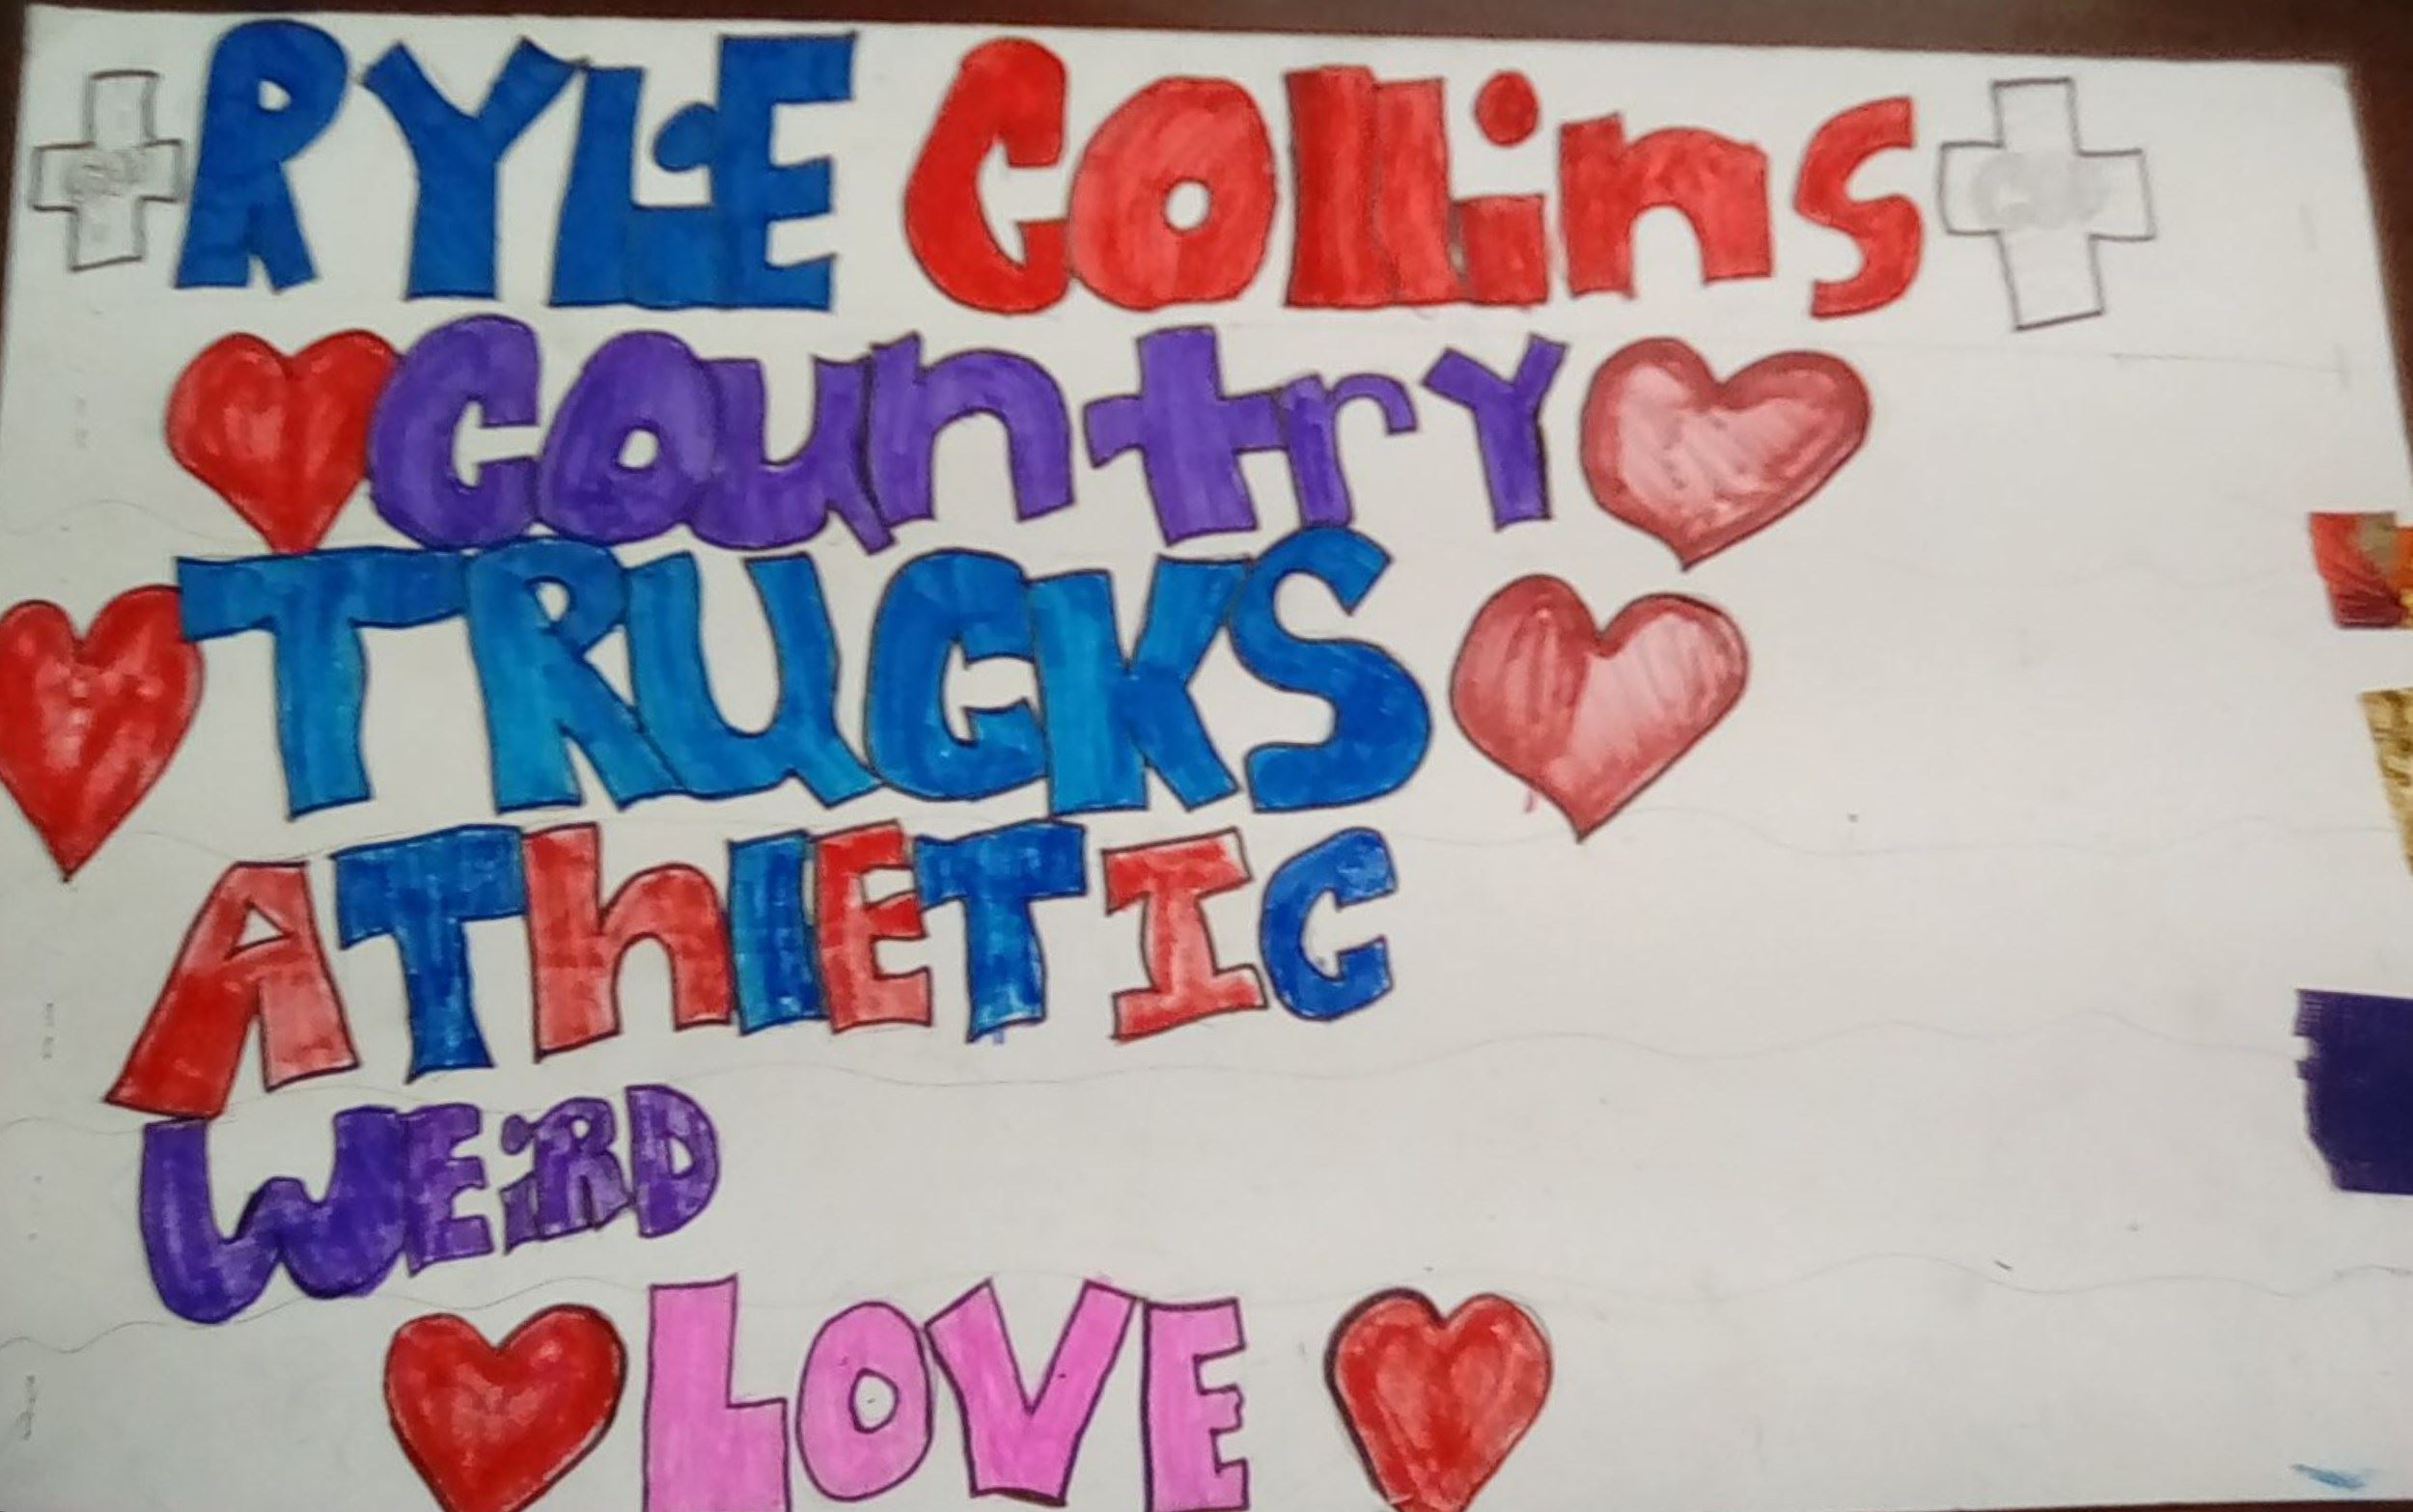 RYLiE Collins
Country
TRUCKS
AThlETIC
WEiRD
LOVE